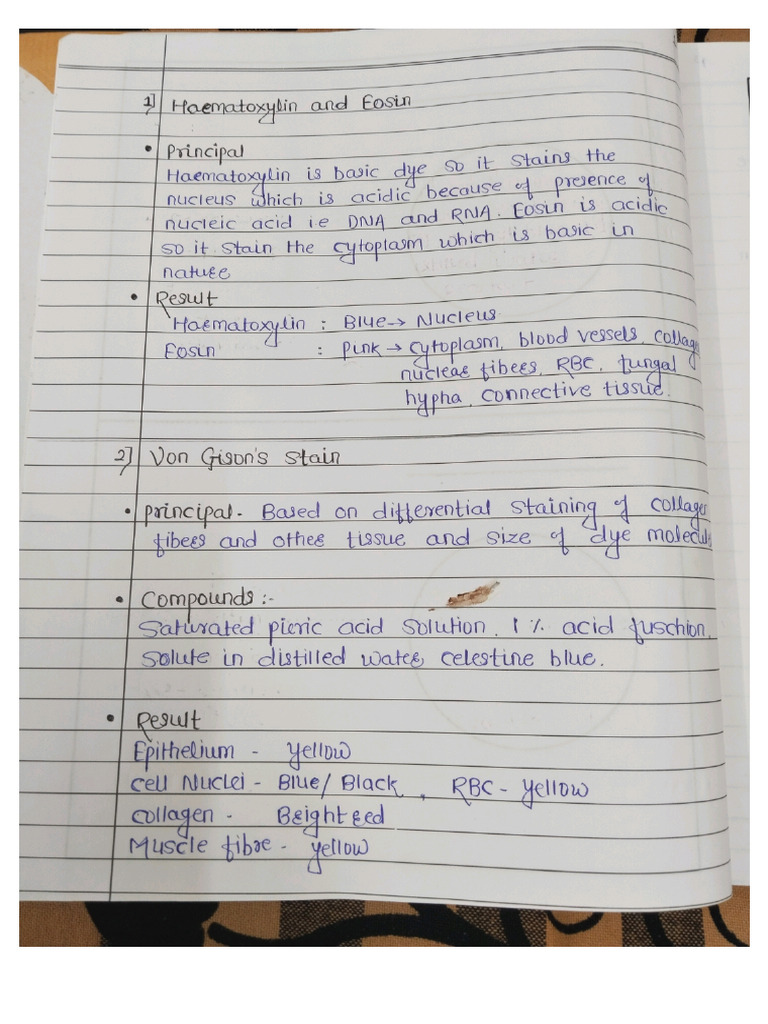 1] Haematoxylin and Eosin
• Principal
Haematoxylin is basic dye so it stains the
nucleus which is acidic because of presence of
nucleic acid i.e DNA and RNA. Eosin is acidic
so it stain the cytoplasm which is basic in
nature
• Result
Haematoxylin : Blue → Nucleus
Eosin : Pink → cytoplasm, blood vessels, collage
nuclear fibers, RBC, fungal
hypha, connective tissue.
2] Von Gison's stain
• principal - Based on differential staining of collage
fibers and other tissue and size of dye molecul
• Compounds :-
Saturated picric acid solution, 1 % acid fuschion,
solute in distilled water, celestine blue.
• Result
Epithelium - yellow
Cell Nuclei - Blue/ Black , RBC - yellow
Collagen - Bright red
Muscle fibre - yellow